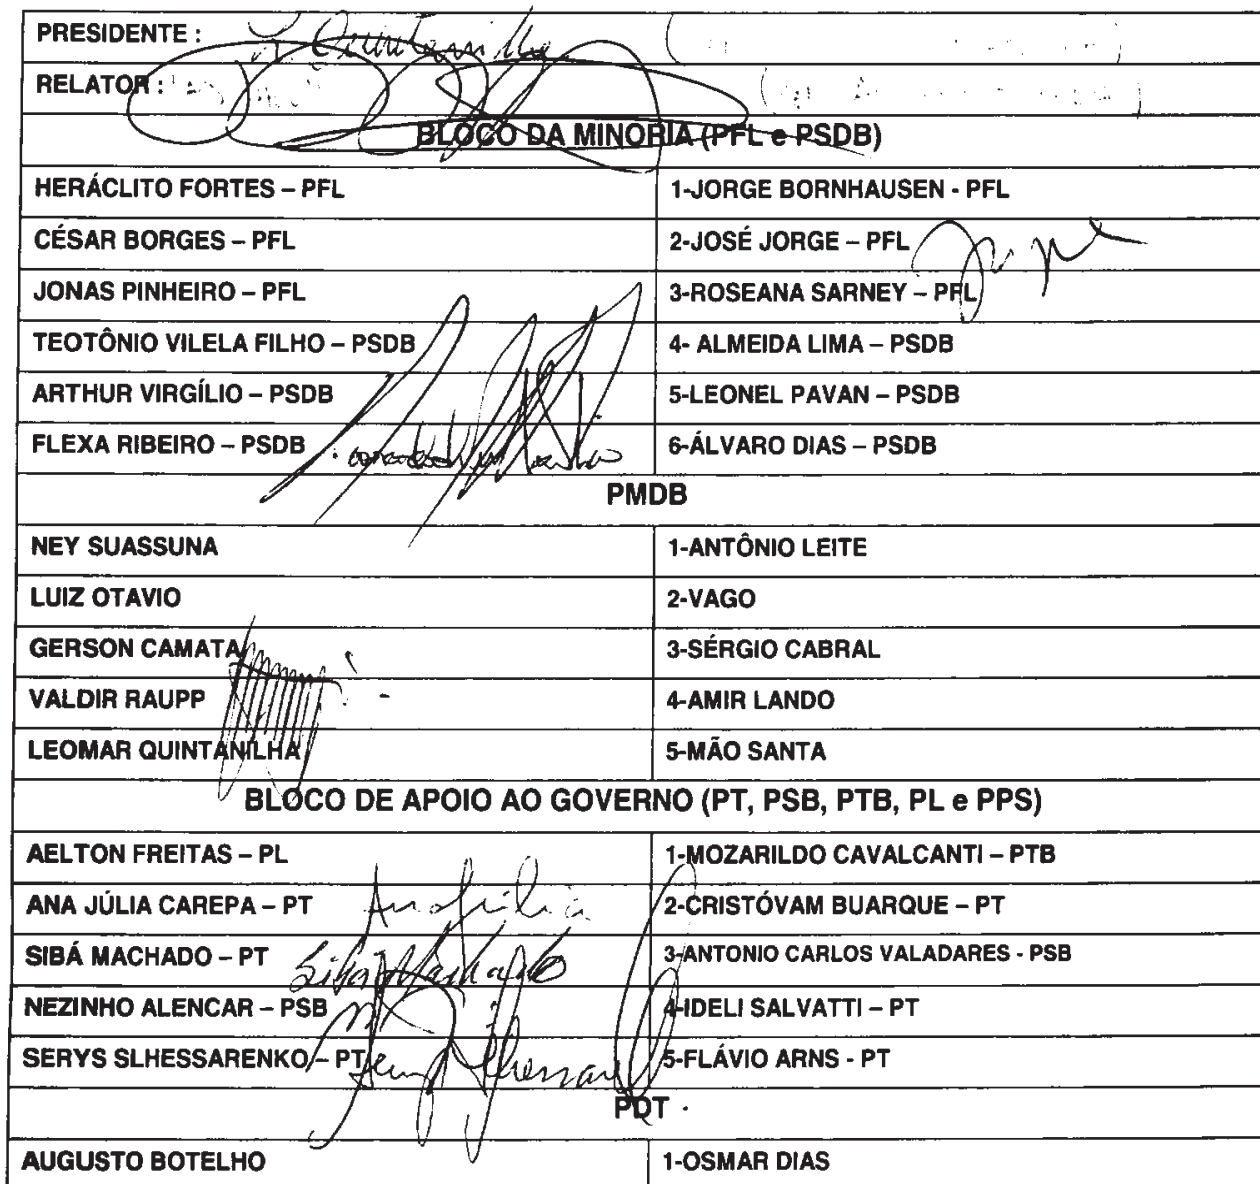 PRESIDENTE : L Quintanilha
RELATOR :
BLOCO DA MINORIA (PFL e PSDB)
HERÁCLITO FORTES – PFL 1-JORGE BORNHAUSEN - PFL
CÉSAR BORGES – PFL 2-JOSÉ JORGE – PFL
JONAS PINHEIRO – PFL 3-ROSEANA SARNEY – PFL
TEOTÔNIO VILELA FILHO – PSDB 4- ALMEIDA LIMA – PSDB
ARTHUR VIRGÍLIO – PSDB 5-LEONEL PAVAN – PSDB
FLEXA RIBEIRO – PSDB 6-ÁLVARO DIAS – PSDB
PMDB
NEY SUASSUNA 1-ANTÔNIO LEITE
LUIZ OTAVIO 2-VAGO
GERSON CAMATA 3-SÉRGIO CABRAL
VALDIR RAUPP 4-AMIR LANDO
LEOMAR QUINTANILHA 5-MÃO SANTA
BLOCO DE APOIO AO GOVERNO (PT, PSB, PTB, PL e PPS)
AELTON FREITAS – PL 1-MOZARILDO CAVALCANTI – PTB
ANA JÚLIA CAREPA – PT Ana Júlia 2-CRISTÓVAM BUARQUE – PT
SIBÁ MACHADO – PT Sibá Machado 3-ANTONIO CARLOS VALADARES - PSB
NEZINHO ALENCAR – PSB 4-IDELI SALVATTI – PT
SERYS SLHESSARENKO – PT Serys 5-FLÁVIO ARNS - PT
PDT
AUGUSTO BOTELHO 1-OSMAR DIAS